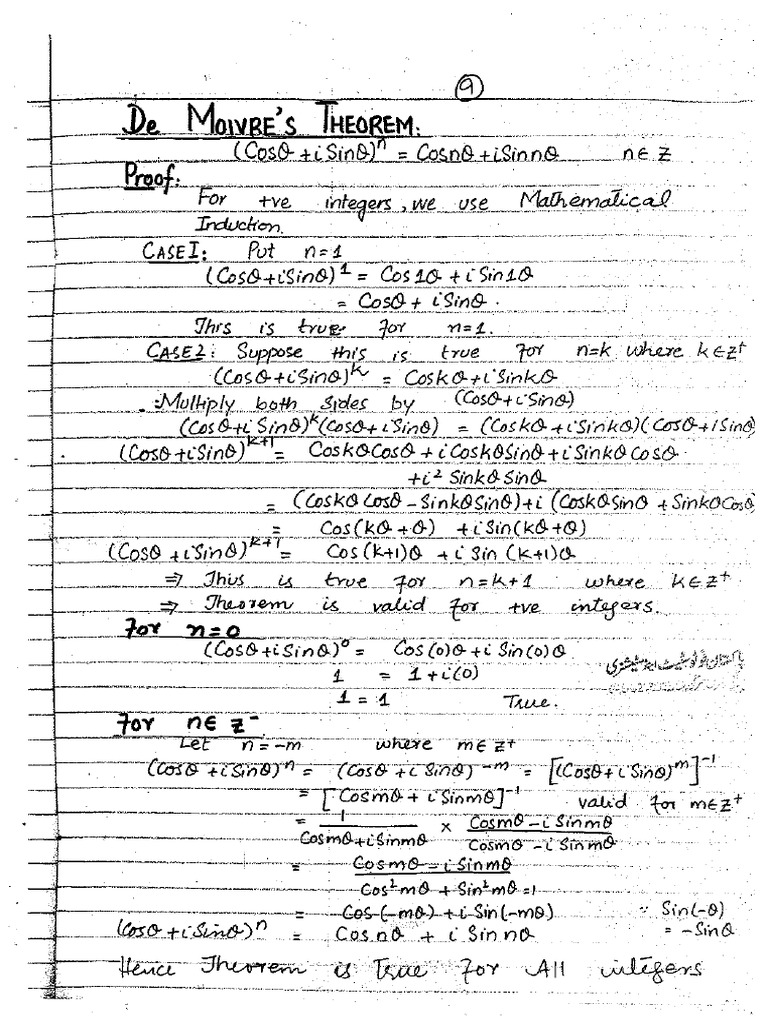 9
De MOIVRE'S THEOREM:
(Cosθ + i Sinθ)ⁿ = Cosnθ + i Sin nθ n∈Z
Proof:
For +ve integers, we use Mathematical
Induction.
CASE I: Put n=1
(Cosθ + i Sinθ)¹ = Cos1θ + i Sin1θ
= Cosθ + i Sinθ.
This is true for n=1.
CASE 2: Suppose this is true for n=k where k∈Z⁺
(Cosθ + i Sinθ)ᵏ = Coskθ + i Sinkθ
∴ Multiply both sides by (Cosθ + i Sinθ)
(Cosθ + i Sinθ)ᵏ (Cosθ + i Sinθ) = (Coskθ + i Sinkθ)(Cosθ + i Sinθ)
(Cosθ + i Sinθ)ᵏ⁺¹ = CoskθCosθ + i CoskθSinθ + i SinkθCosθ
+ i² SinkθSinθ
= (CoskθCosθ - SinkθSinθ) + i (CoskθSinθ + SinkθCosθ)
= Cos(kθ + θ) + i Sin(kθ + θ)
(Cosθ + i Sinθ)ᵏ⁺¹ = Cos(k+1)θ + i Sin(k+1)θ
⇒ This is true for n=k+1 where k∈Z⁺
⇒ Theorem is valid for +ve integers.
For n=0
(Cosθ + i Sinθ)⁰ = Cos(0)θ + i Sin(0)θ
1 = 1 + i(0)
1 = 1 True.
For n∈Z⁻
Let n=-m where m∈Z⁺
(Cosθ + i Sinθ)ⁿ = (Cosθ + i Sinθ)⁻ᵐ = [(Cosθ + i Sinθ)ᵐ]⁻¹
= [Cosmθ + i Sinmθ]⁻¹ valid for m∈Z⁺
= 1/(Cosmθ + i Sinmθ) × (Cosmθ - i Sinmθ)/(Cosmθ - i Sinmθ)
= (Cosmθ - i Sinmθ)/(Cos²mθ + Sin²mθ = 1)
= Cos(-mθ) + i Sin(-mθ) ∵ Sin(-θ)
(Cosθ + i Sinθ)ⁿ = Cosnθ + i Sin nθ = -Sinθ
Hence Theorem is True for All integers